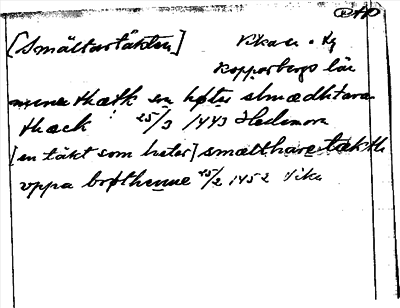 AD
[Smältartäkten] Vika sn. Kg
Kopparbergs län
minna thækt en høter slmædhtara
thæck 25/3 1443 Hedemora
[en täkt som heter] smælthare tækth
oppa brøthenne 15/2 1452 Vika